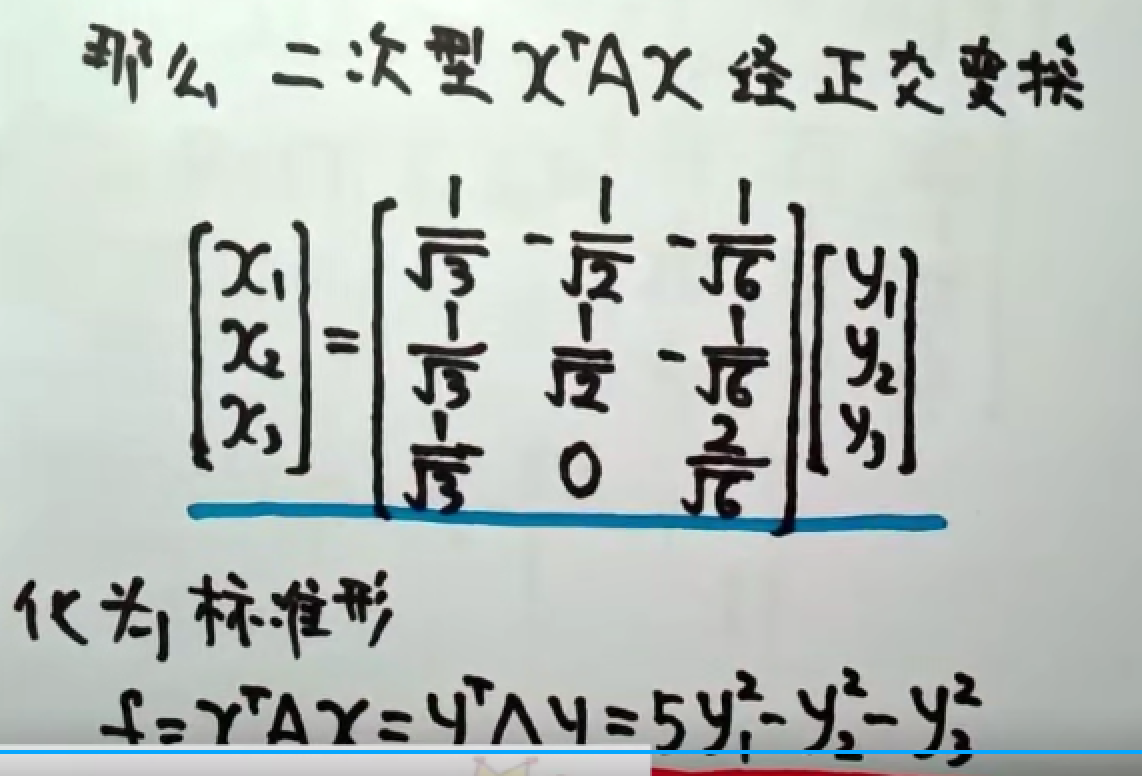 那么 二次型 xᵀAx 经正交变换
[x₁ x₂ x₃] = [1/√3 -1/√2 -1/√6; 1/√3 1/√2 -1/√6; 1/√3 0 2/√6] [y₁ y₂ y₃]
化为标准形
f = xᵀAx = yᵀΛy = 5y₁² - y₂² - y₃²